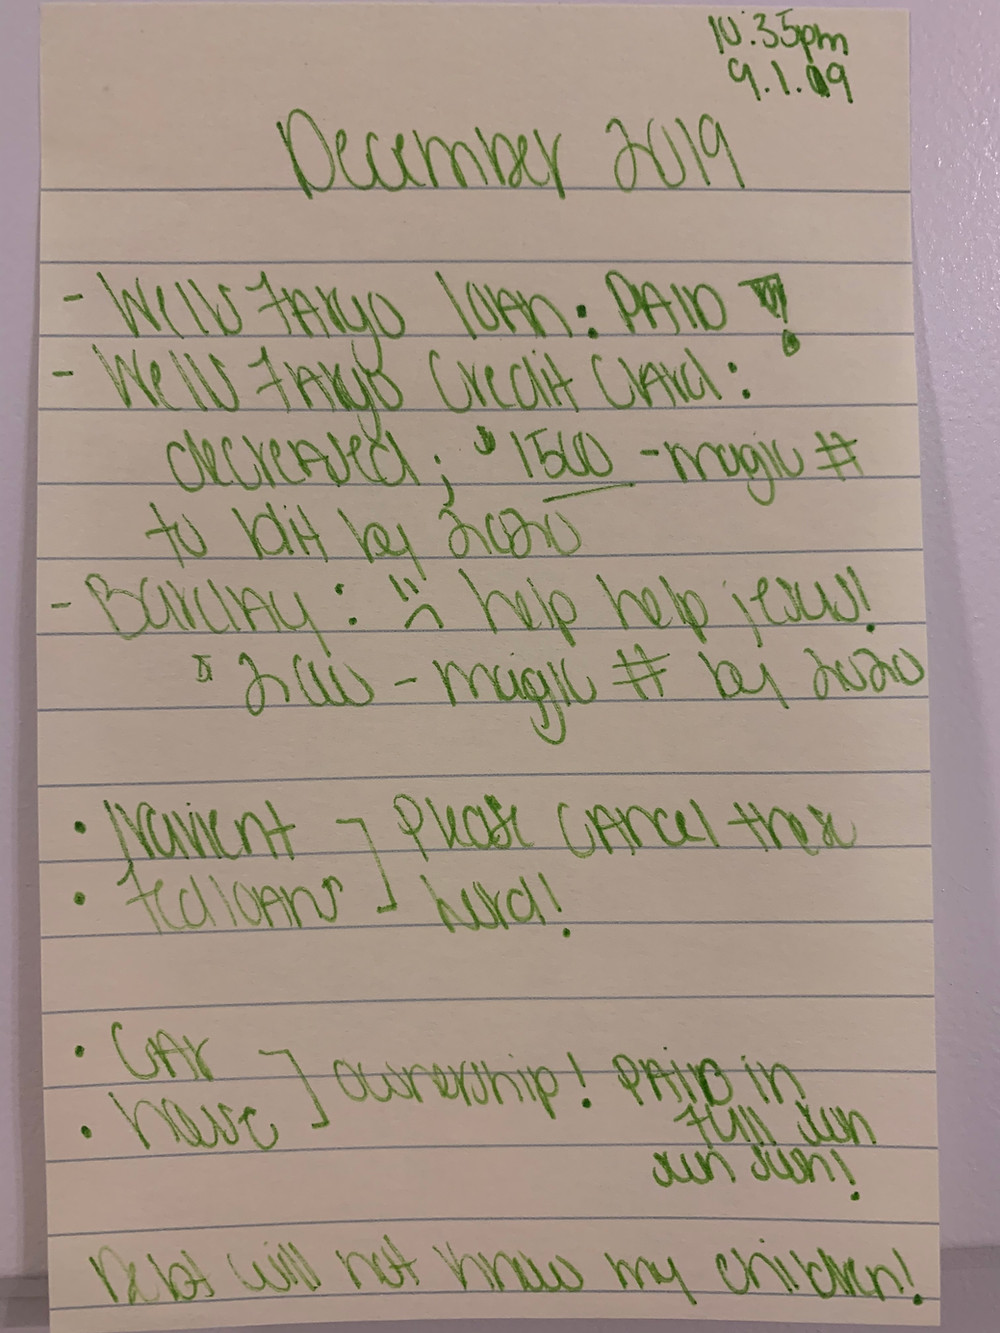 10:35pm
9.1.19
December 2019
- Wells Fargo loan: PAID!
- Wells Fargo Credit Card:
decreased; $1500 - magic #
to hit by 2020
- Barclay: :( help help jesus!
$2000 - magic # by 2020
• Navient ] Please cancel these
• Fedloans ] lord!
• CAR ] ownership! PAID in
• house ] full sun
sun sun!
Debt will not know my children!